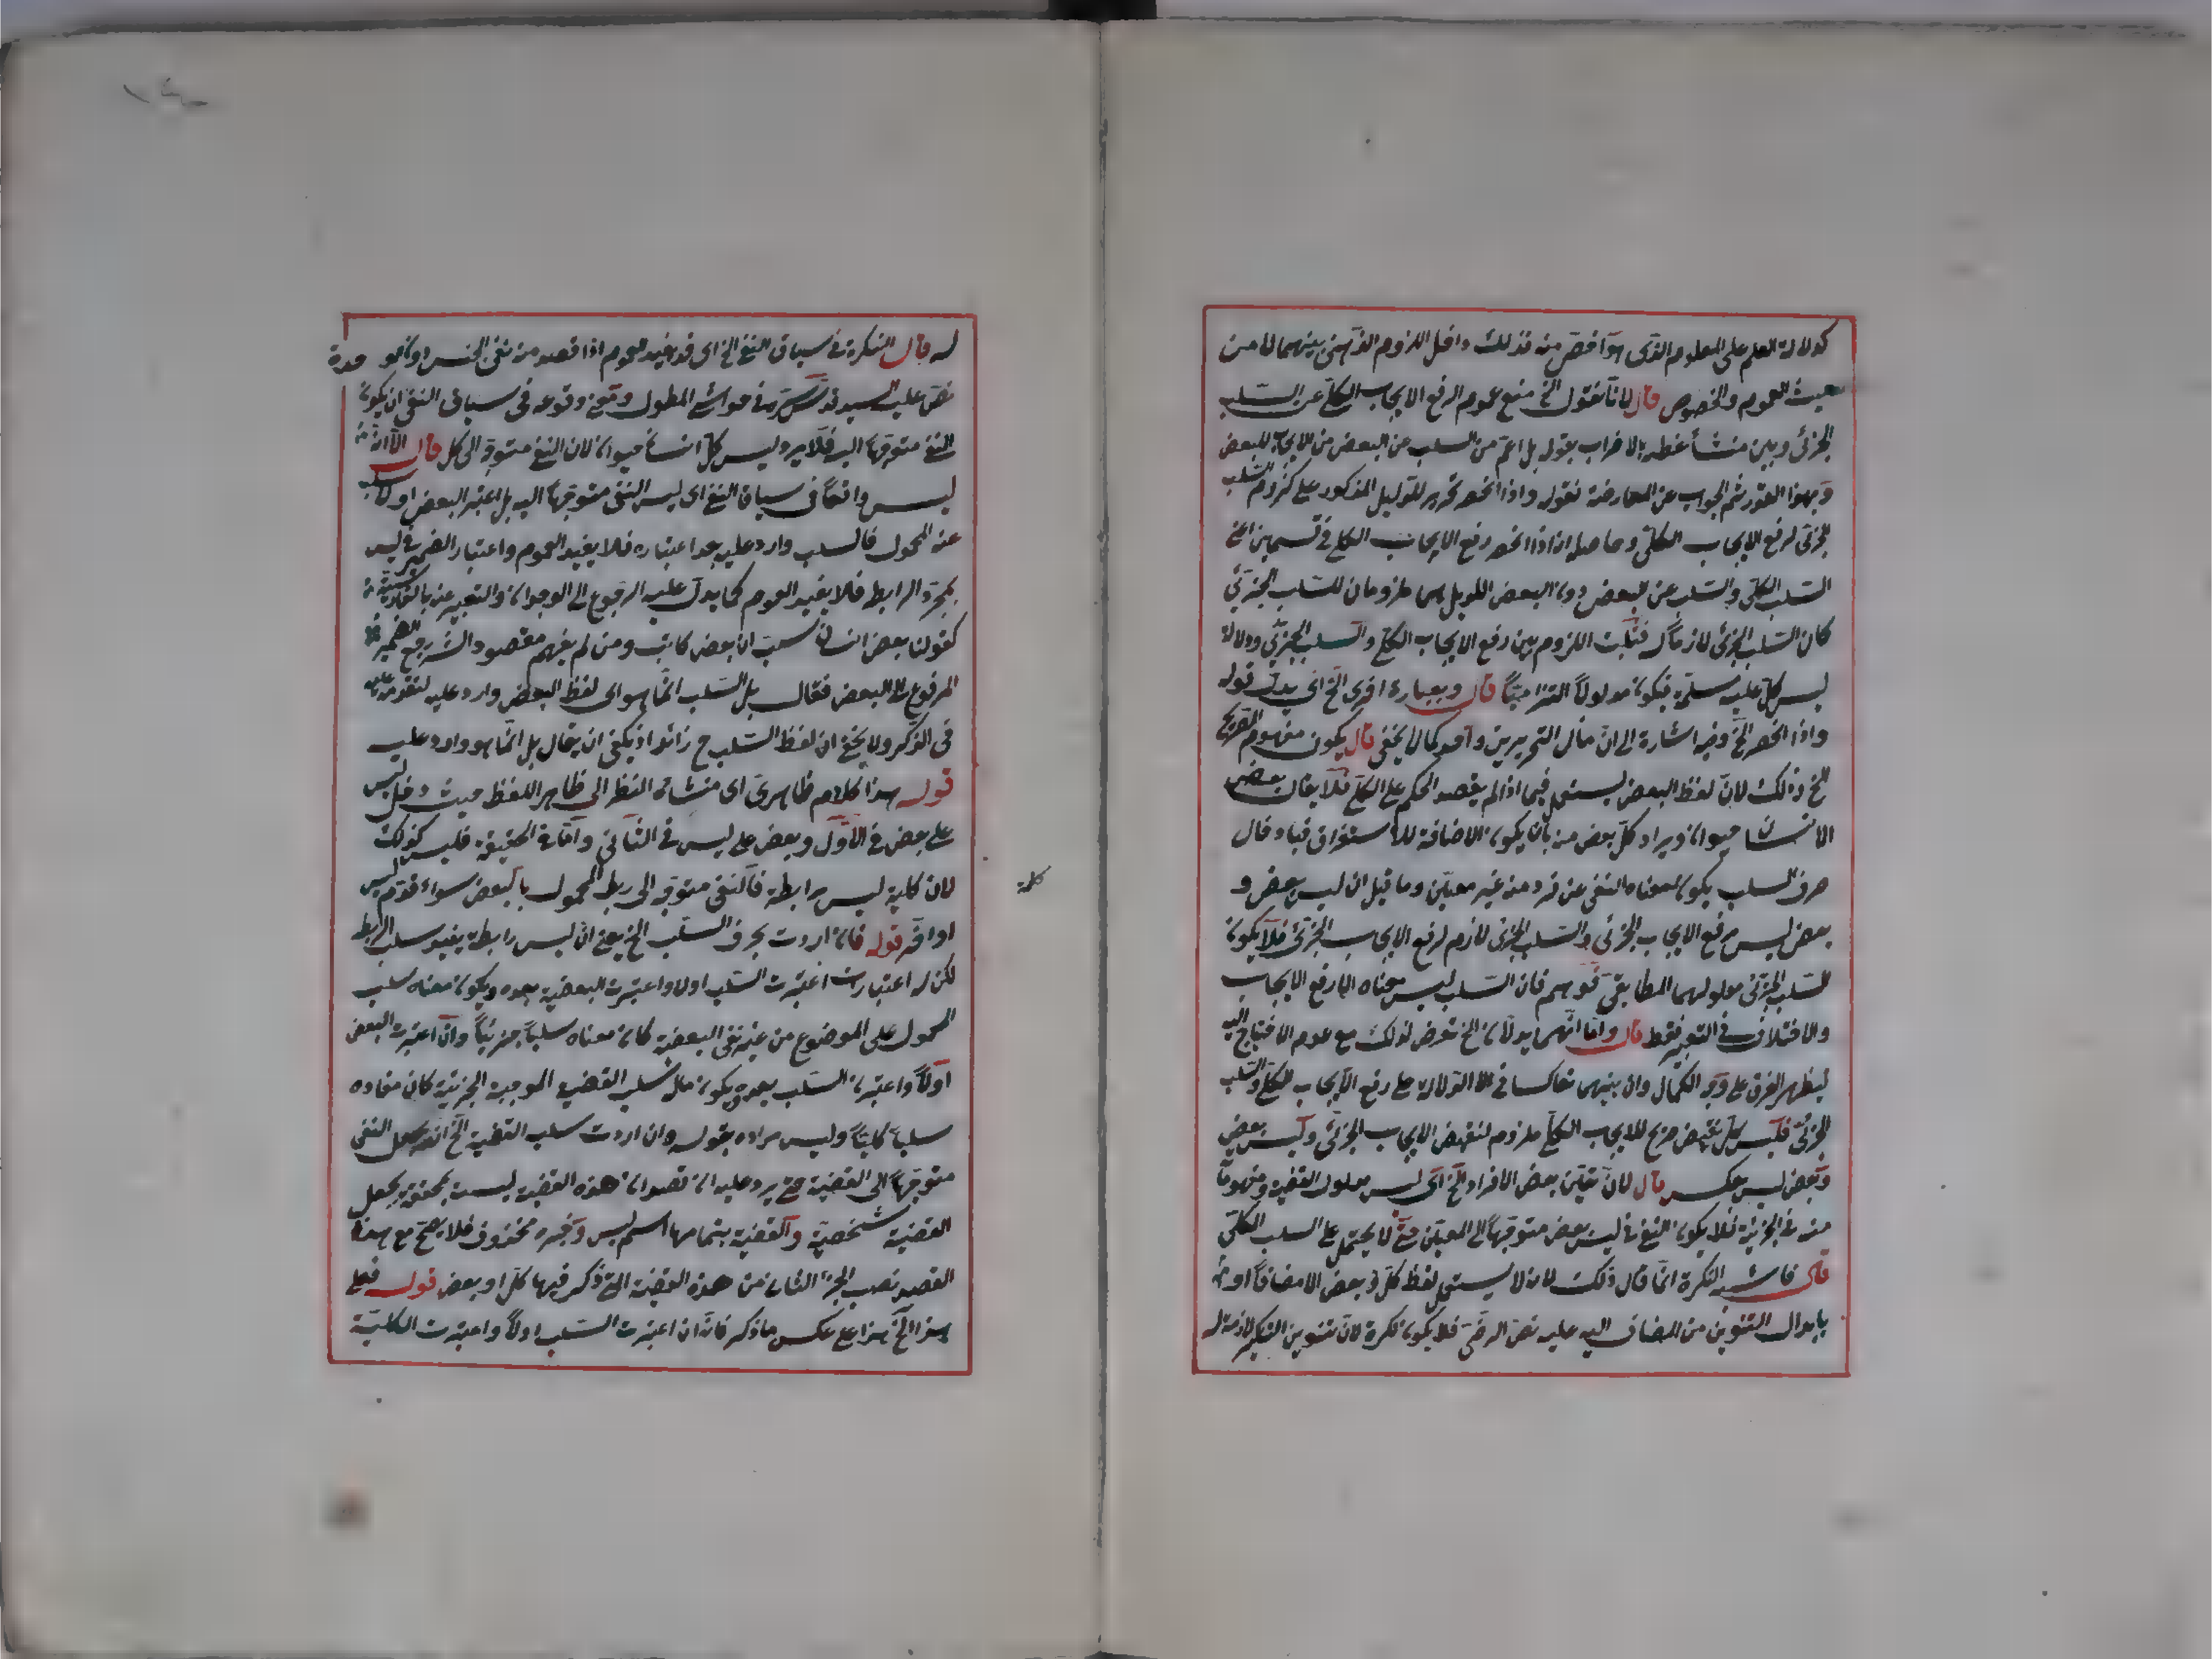 كدلالة العلم على المعلوم الذى هو اخص منه فذلك داخل اللزوم الذهنى بينهما لا من
حيث العموم والخصوص قال لانا نقول الخ منع عموم الرفع الايجاب الكلى عن السلب
الجزئى وبين منشأ غلطه بالاضراب بقوله بل اعم من السلب من البعض من الايجاب للبعض
وبهذا القدر تم الجواب عن المعارضة فقوله واذا انحصر تحرير للدليل المذكور على لزوم السلب
الجزئى لرفع الايجاب الكلى وحاصله انه اذا انحصر رفع الايجاب الكلى فى قسمين اعنى
السلب الكلى والسلب عن البعض دون البعض اللذين هما ملزومان للسلب الجزئى
كان السلب الجزئى لازما له فثبت اللزوم بين رفع الايجاب الكلى والسلب الجزئى ودلالة
ليس كل عليه مسلمة فيكون مدلولا التزاميا قال وبعبارة اخرى الخ اى بدل قوله
واذا انحصر الخ وفيه اشارة الى ان مآل التحريرين واحد كما لا يخفى قال يكون مفهومه الصريح
الخ وذلك لان لفظ البعض يستعمل فيما اذا لم يقصد الحكم على الكل فلا يقال بعض
الانسان حيوان ويراد كل بعض منه بان يكون الاضافة للاستغراق فبادخال
حرف السلب يكون معناه النفى عن فرد منه غير معين وما قيل ان ليس بعض و
بعض ليس رفع الايجاب الجزئى والسلب الجزئى لازم لرفع الايجاب الجزئى فلا يكون
السلب الجزئى مدلولهما المطابقى فوهم فان السلب ليس معناه الا رفع الايجاب
والاختلاف فى التعبير فقط قال واما انهما يدلان الخ تعرض لذلك مع عدم الاحتياج اليه
ليظهر الفرق على وجه الكمال وان بينهما تعاكسا فى الدلالة على رفع الايجاب الكلى والسلب
الجزئى فليس كل نقيض صريح للايجاب الكلى ملزوم لنقيض الايجاب الجزئى وليس بعض
وبعض ليس عكسه قال لان تعين بعض الافراد الخ اى ليس مدلول القضية ومفهوما
منه فى الجزئية فلا يكون النفى فى ليس بعض متوجها الى المعين حتى لا يحتمل على السلب الكلى
قال فاشبه النكرة انما قال ذلك لانه لا يستعمل لفظ كل وبعض الا مضافا او
بابدال التنوين من المضاف اليه عليه نص الرضى فلا يكون نكرة لان تنوين التنكير لازمة له
له قال النكرة فى سياق النفى الخ اى قد يفيد العموم اذا قصد منه نفى الجنس دون الوحدة
نص عليه السيد قدس سره فى حواشى المطول ومعنى وقوعه فى سياق النفى ان يكون
النفى متوجها اليه فلا يرد ليس كل انسان حيوان لان النفى متوجه الى كل قال الا انه
ليس واقعا فى سياق النفى اى ليس النفى متوجها اليه بل اعتبر البعض اولا
عنه المحمول فالسلب وارد عليه بعد اعتباره فلا يفيد العموم واعتبار الضمير فى ليس
بمجرد الرابطة فلا يفيد العموم كما يدل عليه الرجوع الى الوجدان والتعبير عنه بالفارسية
كقولنا بعض انسان نيست ان بعض كاتب ومن لم يفهم مقصود الشارح رجع الضمير
المرفوع الى البعض فقال بل السلب انما هو اى لفظ البعض وارد عليه لتقدمه عليه
فى الذكر ولا يخفى ان لفظ السلب ح زائد اذ يكفى ان يقال بل انما هو وارد عليه
قوله هذا كلام ظاهرى اى منشائه النظر الى ظاهر اللفظ حيث دخل ليس
على بعض فى الاول وبعض على ليس فى الثانى واما فى الحقيقة فليس كذلك
لان كلمة ليس رابطة فالنفى متوجه الى ربط المحمول بالبعض سواء قدم ليس
او اخر قوله فان اردت بحرف السلب الخ يعنى ان ليس رابطة يفيد سلب الربط
لكن له اعتباران اعتبرت السلب اولا واعتبرت البعضية بعده ويكون معناه سلب
المحمول على الموضوع من غير نفى البعضية كان معناه سلبا جزئيا وان اعتبرت البعض
اولا واعتبرت السلب بعده ويكون مآله سلب القضية الموجبة الجزئية كان مفاده
سلبا كليا وليس مراده بقوله وان اردت سلب القضية الخ انه جعل النفى
متوجها الى القضية حتى يرد عليه ان قصد ان هذه القضية ليست بمحققة يجعل
القضية شخصية والقضية بتمامها اسم ليس وخبره محذوف فلا يصح مع هذا
القصد نصب الجزء الثانى من هذه القضية التى ذكر فيها كل او بعض قوله فعلى
هذا الخ هذا على عكس ما ذكر فانه ان اعتبرت السلب اولا واعتبرت الكلية
كلمة